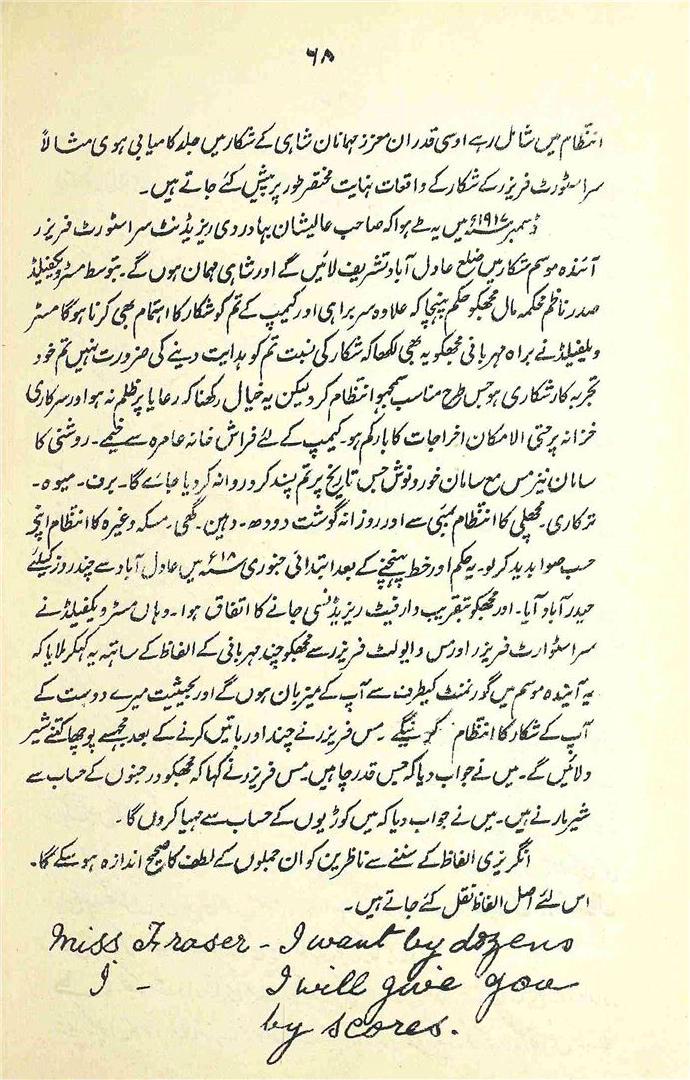 ۶۸
انتظام میں شامل رہے اوسی قدر ان معزز مہمانان شاہی کے شکار میں جلد کامیابی ہوی مثالاً
سر اسٹورٹ فریزر کے شکار کے واقعات نہایت مختصر طور پر پیش کئے جاتے ہیں۔
ڈسمبر ۱۹۱۷ء میں یہ طے ہوا کہ صاحب عالیشان بہادر دی ریزیڈنٹ سر اسٹورٹ فریزر
آئندہ موسم شکار میں ضلع عادل آباد تشریف لائیں گے اور شاہی مہمان ہوں گے۔ بتوسط مسٹر ویکفیلڈ
صدر ناظم محکمہ مال مجھکو حکم پہنچا کہ علاوہ سربراہی اور کیمپ کے تم کو شکار کا اہتمام بھی کرنا ہوگا مسٹر
ویکفیلڈ نے براہ مہربانی مجھکو یہ بھی لکھا کہ شکار کی نسبت تم کو ہدایت دینے کی ضرورت نہیں تم خود
تجربہ کار شکاری ہو جس طرح مناسب سمجھو انتظام کرو لیکن یہ خیال رکھنا کہ رعایا پر ظلم نہ ہو اور سرکاری
خزانہ پر حتی الامکان اخراجات کا بار کم ہو۔ کیمپ کے لئے فراش خانہ عامرہ سے خیمے۔ روشنی کا
سامان نیز مس مع سامان خور و نوش جس تاریخ پر تم پسند کرو روانہ کر دیا جاے گا۔ برف۔ میوہ۔
ترکاری۔ مچھلی کا انتظام بمبئی سے اور روزانہ گوشت دودھ۔ دہین۔ گھی۔ مسکہ وغیرہ کا انتظام
حسب صوابدید کر لو۔ یہ حکم اور خط پہنچنے کے بعد ابتدائی جنوری ۱۸ء میں عادل آباد سے چند روز کیلئے
حیدرآباد آیا۔ اور مجھکو بتقریب وار فیٹ ریزیڈنسی جانے کا اتفاق ہوا۔ وہاں مسٹر ویکفیلڈ نے
سر اسٹوارٹ فریزر اور مس وایولٹ فریزر سے مجھکو چند مہربانی کے الفاظ کے ساتھ یہ کہکر ملایا کہ
یہ آیندہ موسم میں گورنمنٹ کیطرف سے آپ کے میزبان ہوں گے اور بحیثیت میرے دوست کے
آپ کے شکار کا انتظام کرینگے۔ مس فریزر نے چند اور باتیں کرنے کے بعد مجھسے پوچھا کتنے شیر
دلائیں گے۔ میں نے جواب دیا کہ جس قدر چاہیں۔ مس فریزر نے کہا کہ مجھکو درجنوں کے حساب سے
شیر مارنے ہیں۔ میں نے جواب دیا کہ میں کوڑیوں کے حساب سے مہیا کروں گا۔
انگریزی الفاظ کے سننے سے ناظرین کو ان جملوں کے لطف کا صحیح اندازہ ہو سکے گا۔
اس لئے اصل الفاظ نقل کئے جاتے ہیں۔
Miss Fraser - I want by dozens
I - I will give you
by scores.